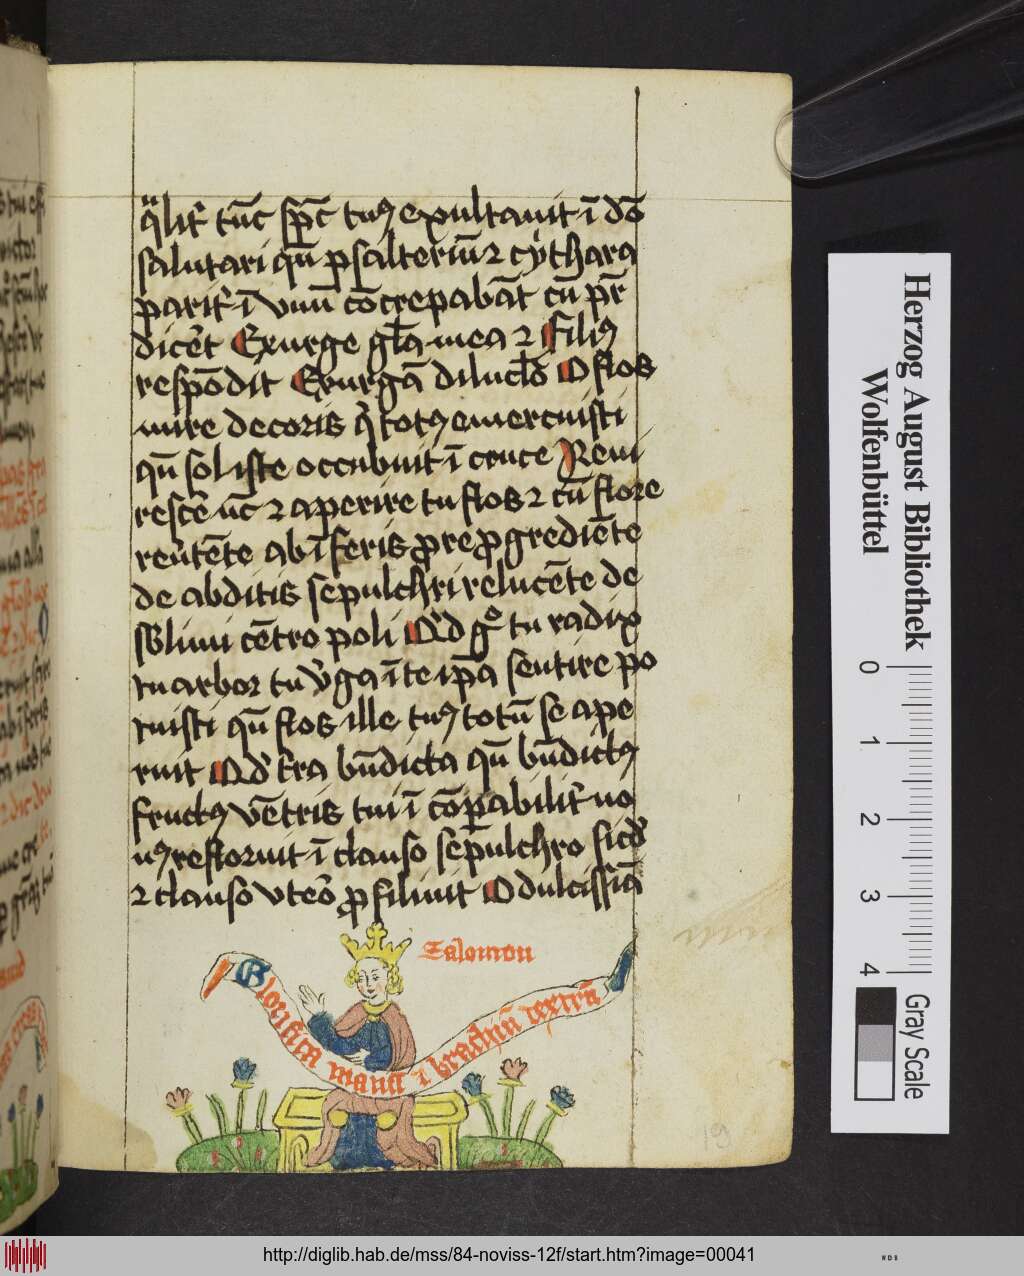 qͥlit͛ tūc sp̄c tuꝯ exultauit ī dō
salutari qn̄ psalteriū ⁊ cythara
parit͛ ī vnū cōcrepabāt cū pr̄
dicēt Exurge gl̄a mea ⁊ Filiꝯ
respōdit Exurgā diluc̄lo O flos
mire decoris q̄ totꝯ emercuisti
qn̄ sol iste occubuit ī cruce Reui
resce nūc ⁊ aperire tu flos ⁊ cū flore
reūtēte ab īferis ꝓreꝓgrediēte
de abditis sepulchri relucēte de
sb̄limi cētro poli Qd̄ gͦ tu radix
tu arbor tu v̄ga ī te ip̄a sentire po
tuisti qn̄ flos ille tuꝯ totū se ape
ruit Qd̄ tr̄a bn̄dicta qn̄ bn̄dictꝯ
fructꝯ vētris tui ī cōpabilit͛ no
uꝯ refloruit ī clauso sepulchro sicd̄
⁊ clauso vteō ꝓsiliuit O dulcissīa
Salomon
Glorifica manū ⁊ brachiū dextrū
19
Herzog August Bibliothek
Wolfenbüttel
0 1 2 3 4
Gray Scale
http://diglib.hab.de/mss/84-noviss-12f/start.htm?image=00041